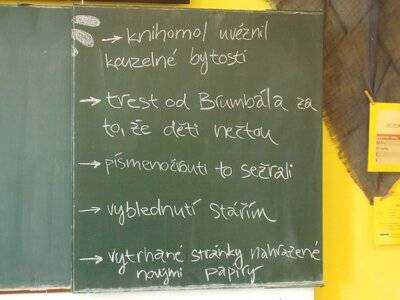 → knihomol uvěznil
kouzelné bytosti
→ trest od Brumbála za
to, že děti nečtou
→ písmenožrouti to sežrali
→ vyblednutí stářím
→ vytrhané stránky nahražené
novými papíry